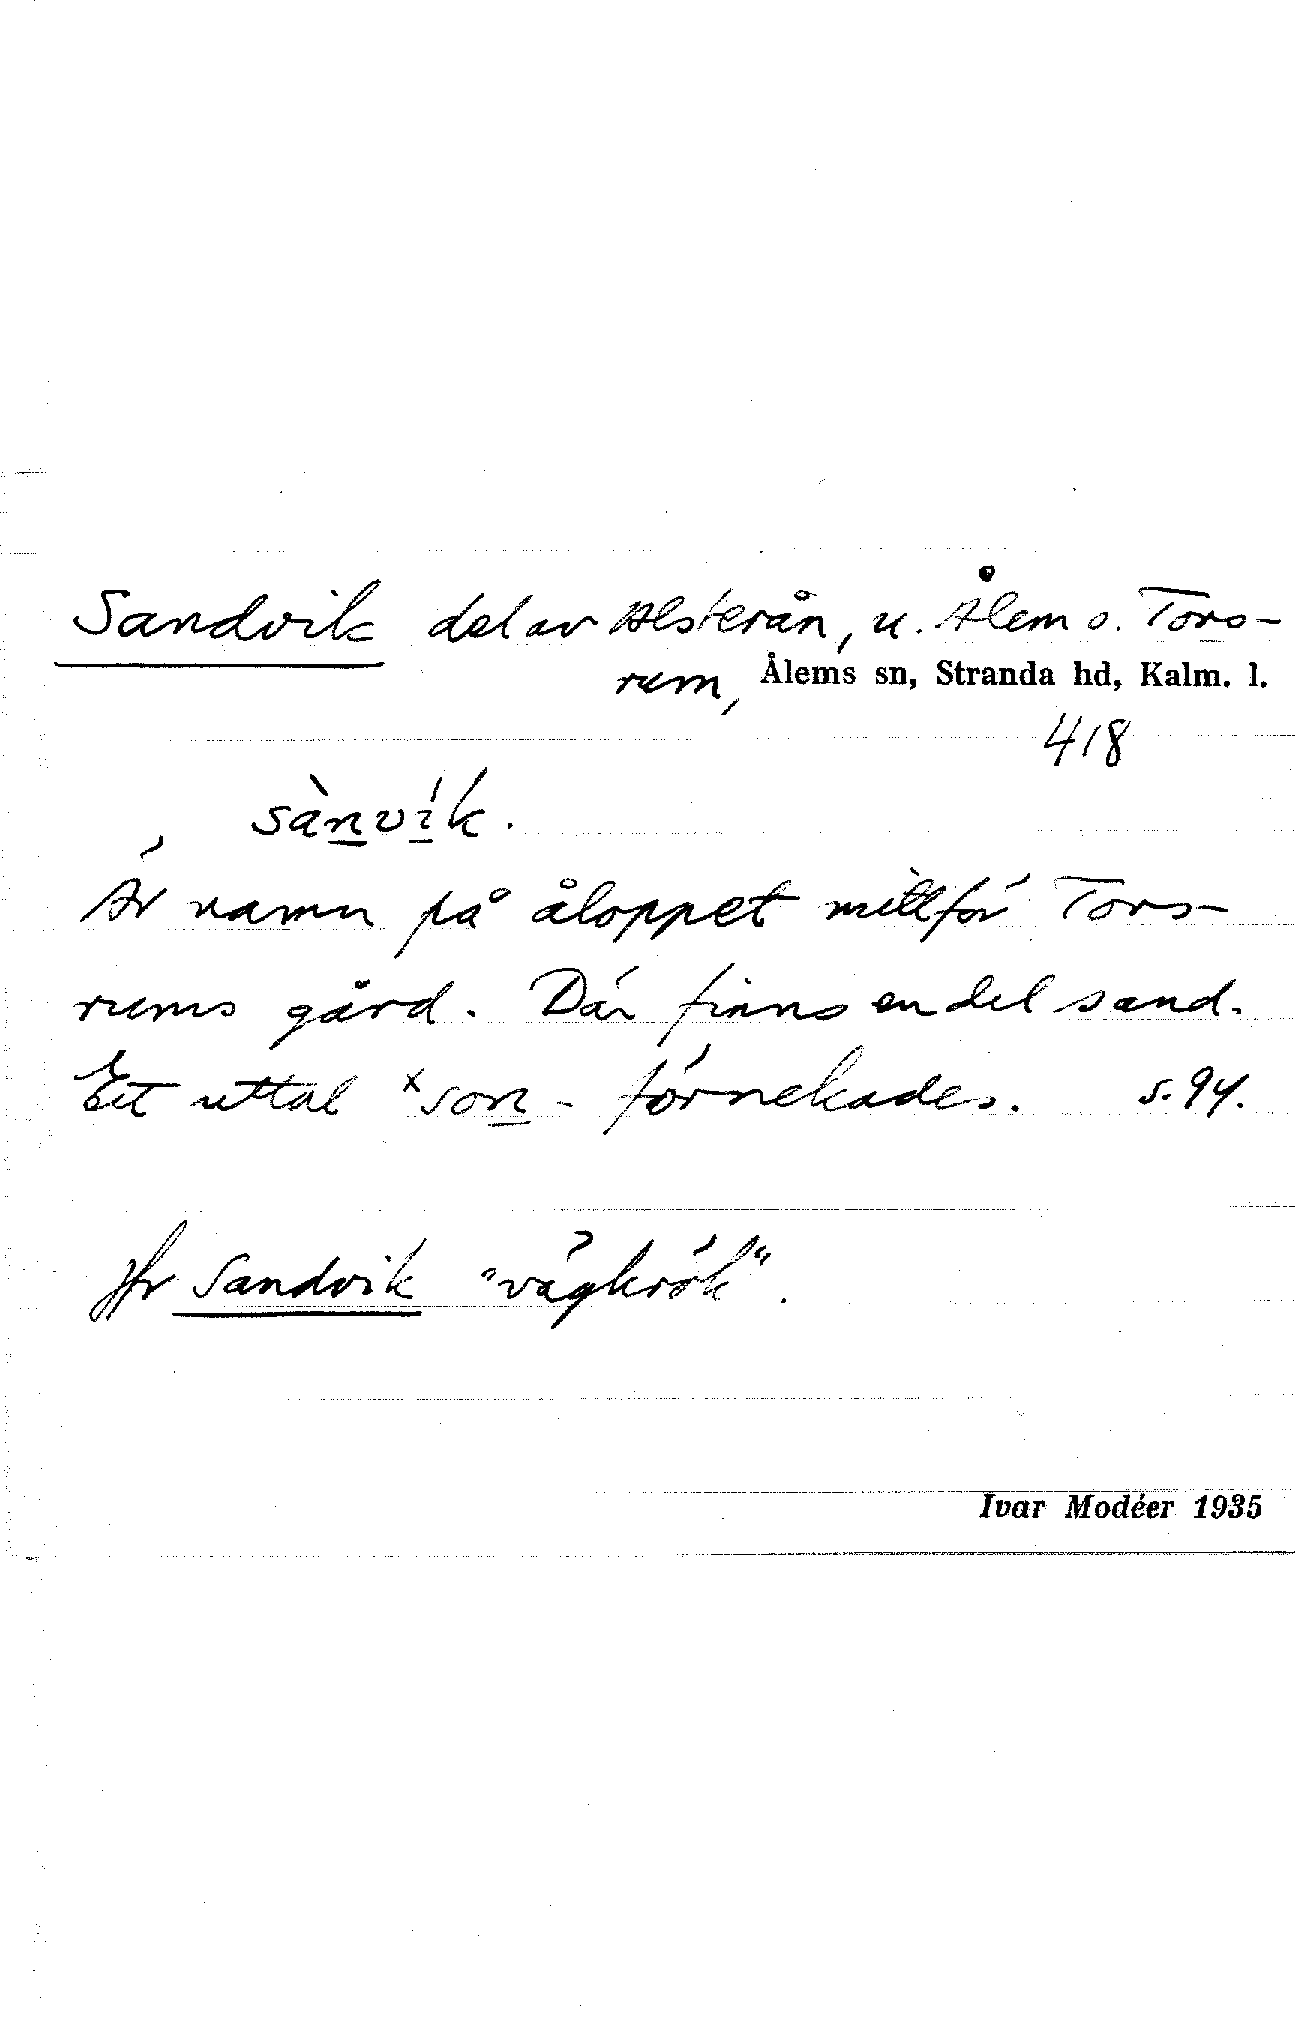 Sandvik del av Alsterån, u. Ålem o. Tors-
rum, Ålems sn, Stranda hd, Kalm. l.
418
sànvík.
Är namn på åloppet mittför Tors-
rums gård. Där finns en del sand.
Ett uttal ˣson- förnekades. s. 94.
Jfr Sandvik "vägkrök".
Ivar Modéer 1935